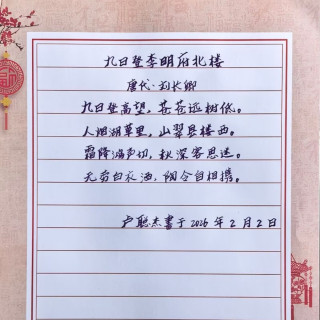 九日登李明府北楼
唐代·刘长卿
九日登高望，苍苍远树低。
人烟湖草里，山翠县楼西。
霜降鸿声切，秋深客思迷。
无劳白衣酒，陶令自相携。
卢聪杰書于2026年2月2日